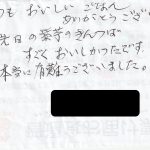 つも おいしい ごはん
ありがとうござい
先日の薬芋のきんつば
すごく おいしかったです。
本当に有難うございました。